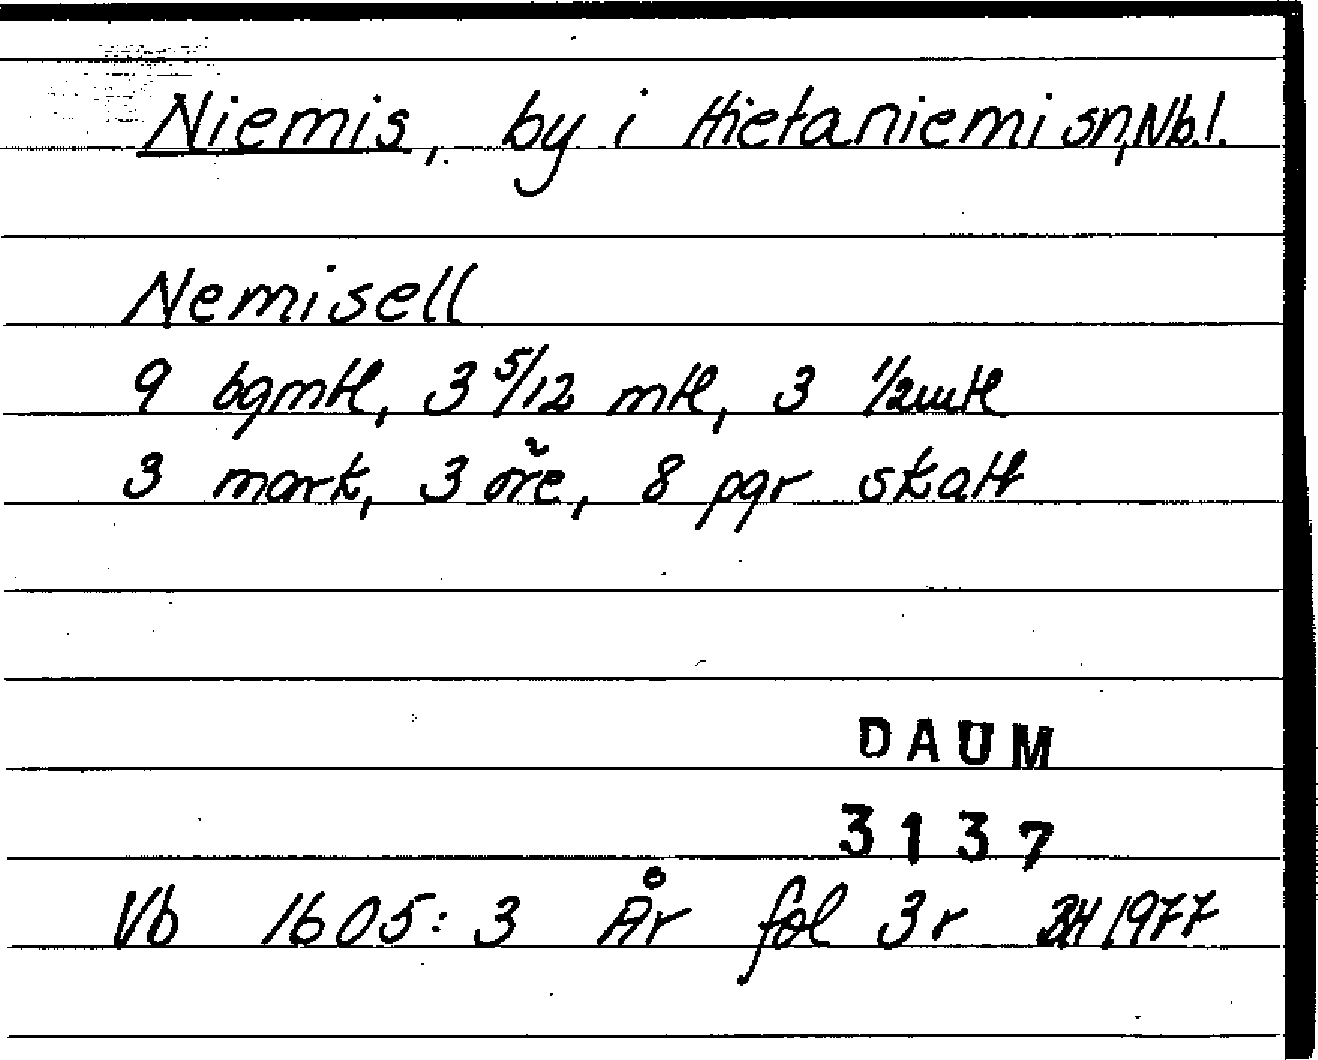 Niemis, by i Hietaniemi sn, Nb.l.
Nemisell
9 bgmtl, 3 5/12 mtl, 3 1/2 mtl
3 mark, 3 öre, 8 pgr skatt
DAUM
3137
Vb 1605:3 År fol 3r 1977